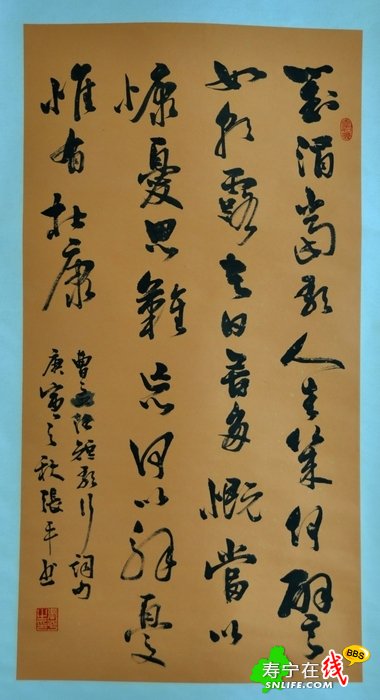 對酒當歌人生幾何譬
如朝露去日苦多慨當以
慷憂思難忘何以解憂
惟有杜康
庚寅之秋張平書
寿宁在线
BBS
SNLIFE.COM